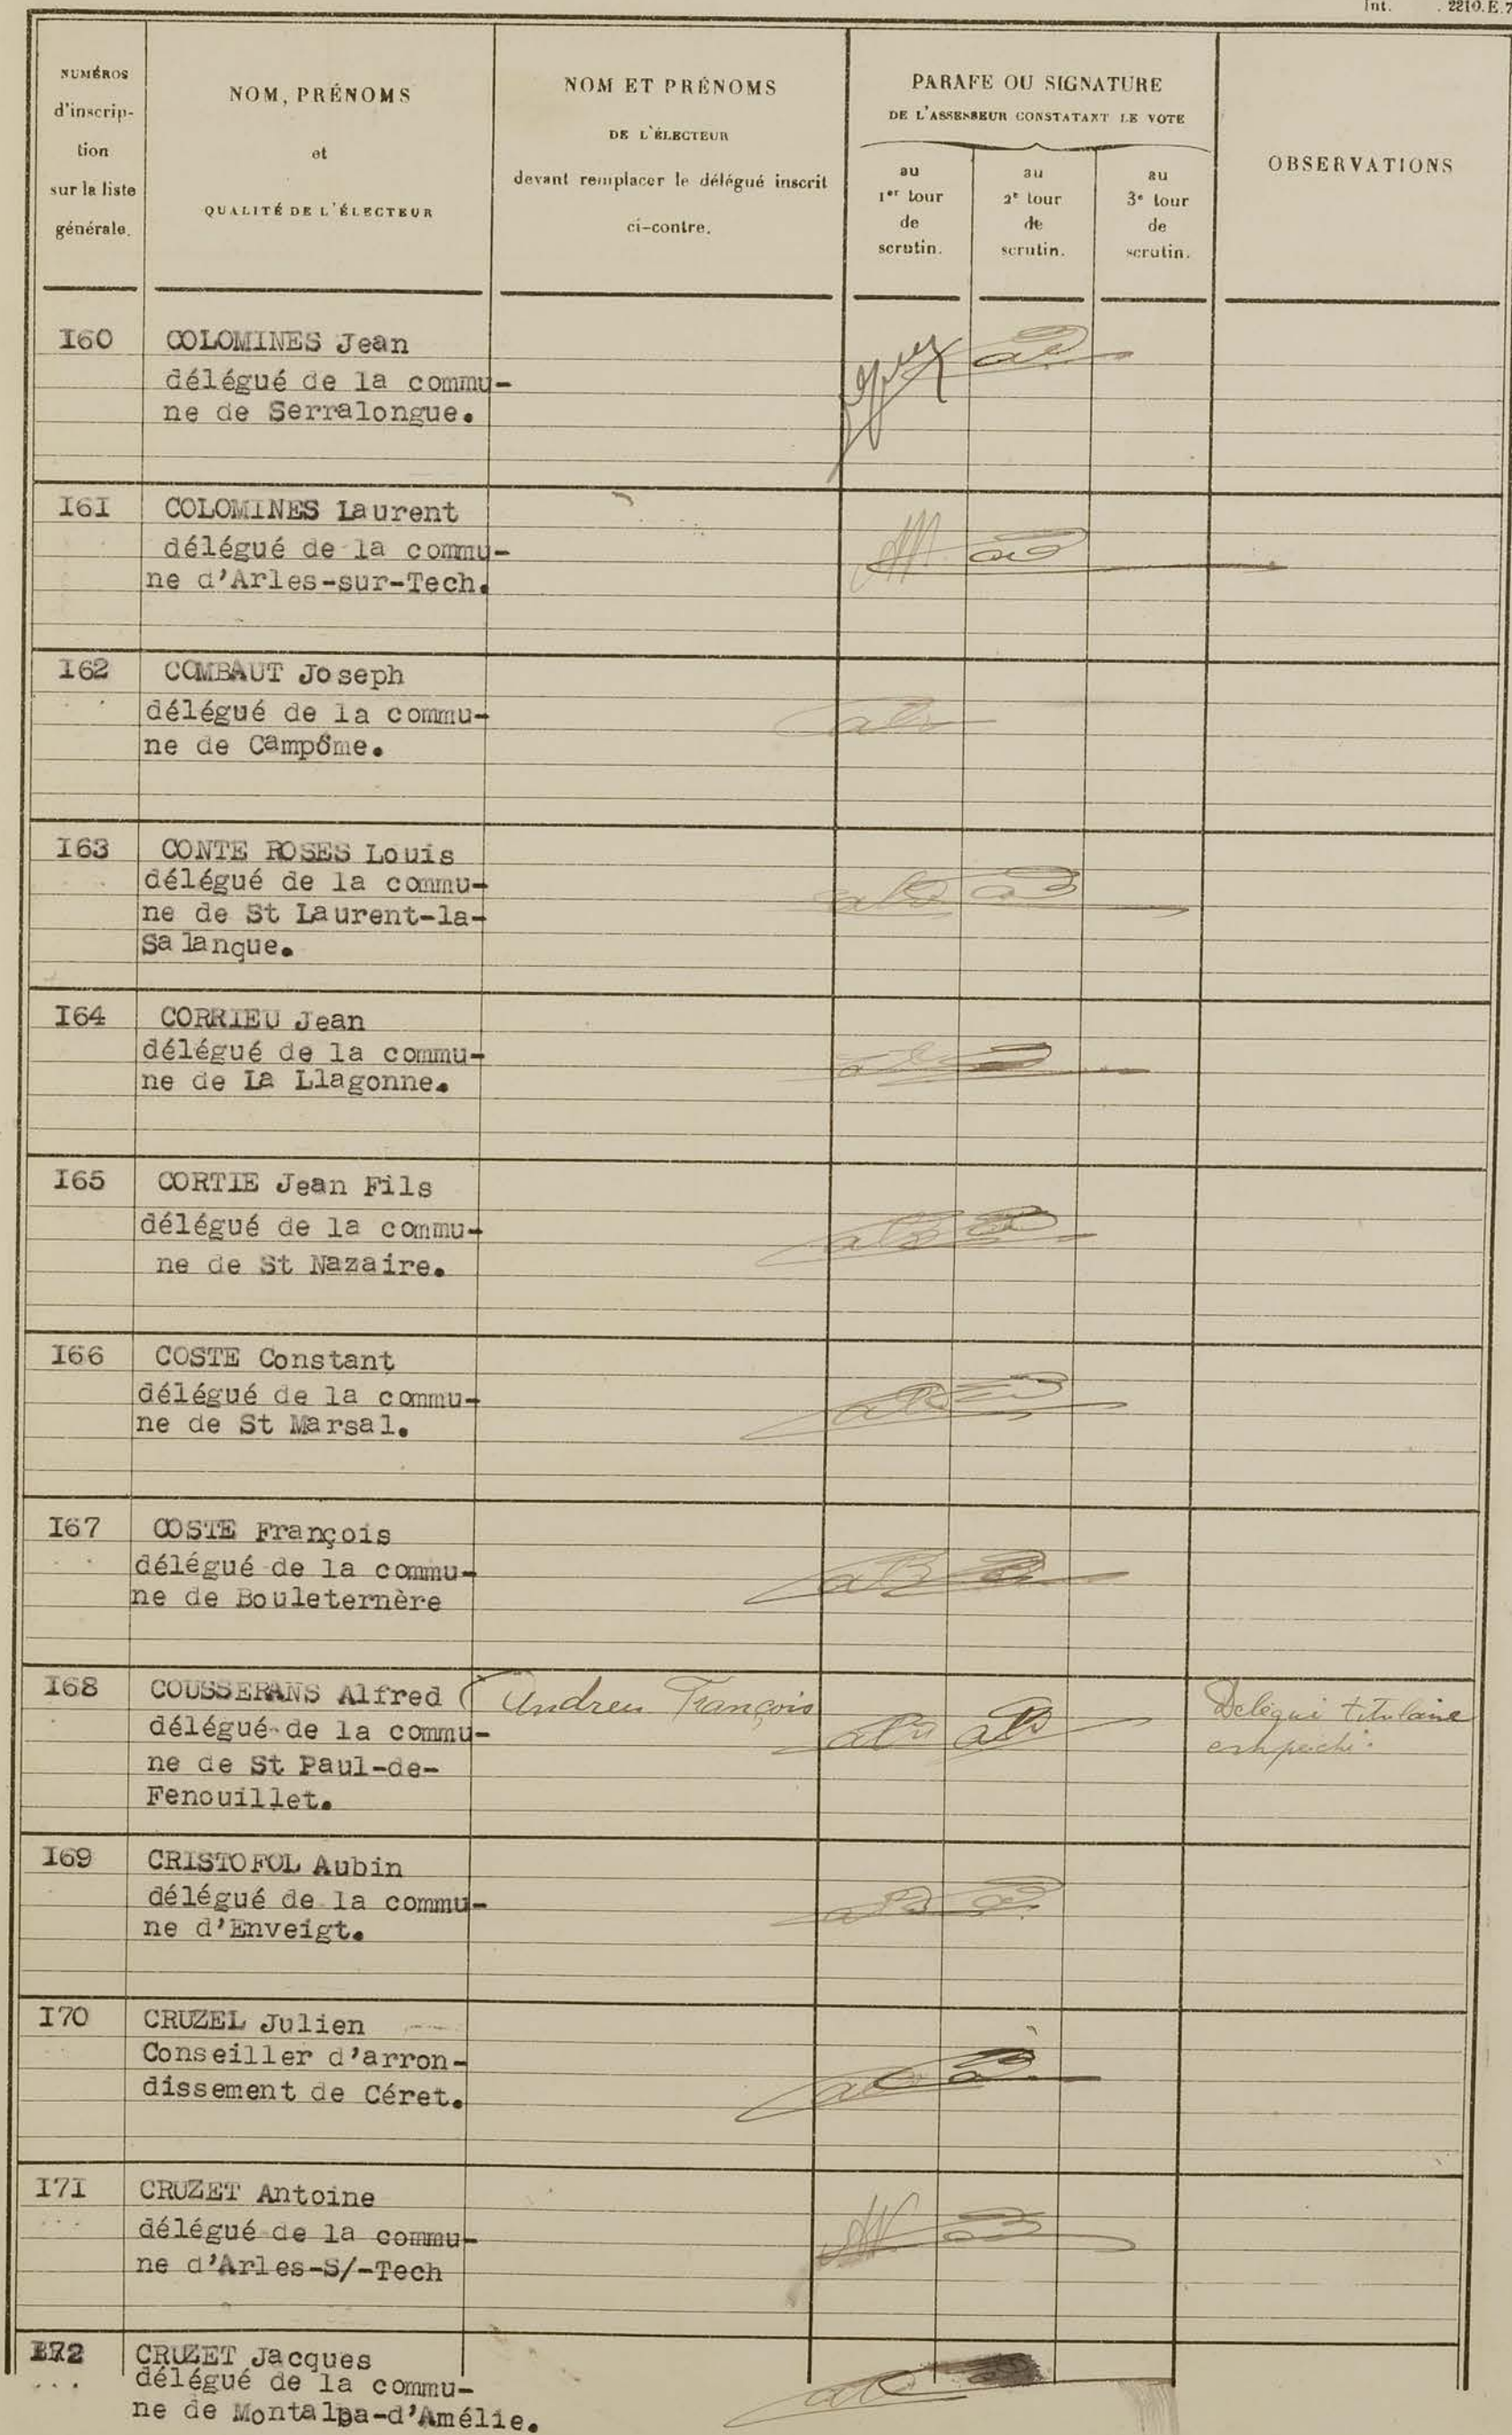 Int. . 2210. E. 7
NUMÉROS
d'inscrip-
tion
sur la liste
générale.
NOM, PRÉNOMS
et
QUALITÉ DE L'ÉLECTEUR
NOM ET PRÉNOMS
DE L'ÉLECTEUR
devant remplacer le délégué inscrit
ci-contre.
PARAFE OU SIGNATURE
DE L'ASSESSEUR CONSTATANT LE VOTE
au
1er tour
de
scrutin.
au
2e tour
de
scrutin.
au
3e tour
de
scrutin.
OBSERVATIONS
I60 COLOMINES Jean
délégué de la commu-
ne de Serralongue.
I6I COLOMINES Laurent
délégué de la commu-
ne d'Arles-sur-Tech.
I62 COMBAUT Joseph
délégué de la commu-
ne de Campôme.
I63 CONTE ROSES Louis
délégué de la commu-
ne de St Laurent-la-
Salanque.
I64 CORRIEU Jean
délégué de la commu-
ne de La Llagonne.
I65 CORTIE Jean Fils
délégué de la commu-
ne de St Nazaire.
I66 COSTE Constant
délégué de la commu-
ne de St Marsal.
I67 COSTE François
délégué de la commu-
ne de Bouleternère
I68 COUSSERANS Alfred Andreu François Délégué titulaire
délégué de la commu- empêché.
ne de St Paul-de-
Fenouillet.
I69 CRISTOFOL Aubin
délégué de la commu-
ne d'Enveigt.
I70 CRUZEL Julien
Conseiller d'arron-
dissement de Céret.
I7I CRUZET Antoine
délégué de la commu-
ne d'Arles-S/-Tech
I72 CRUZET Jacques
délégué de la commu-
ne de Montalba-d'Amélie.